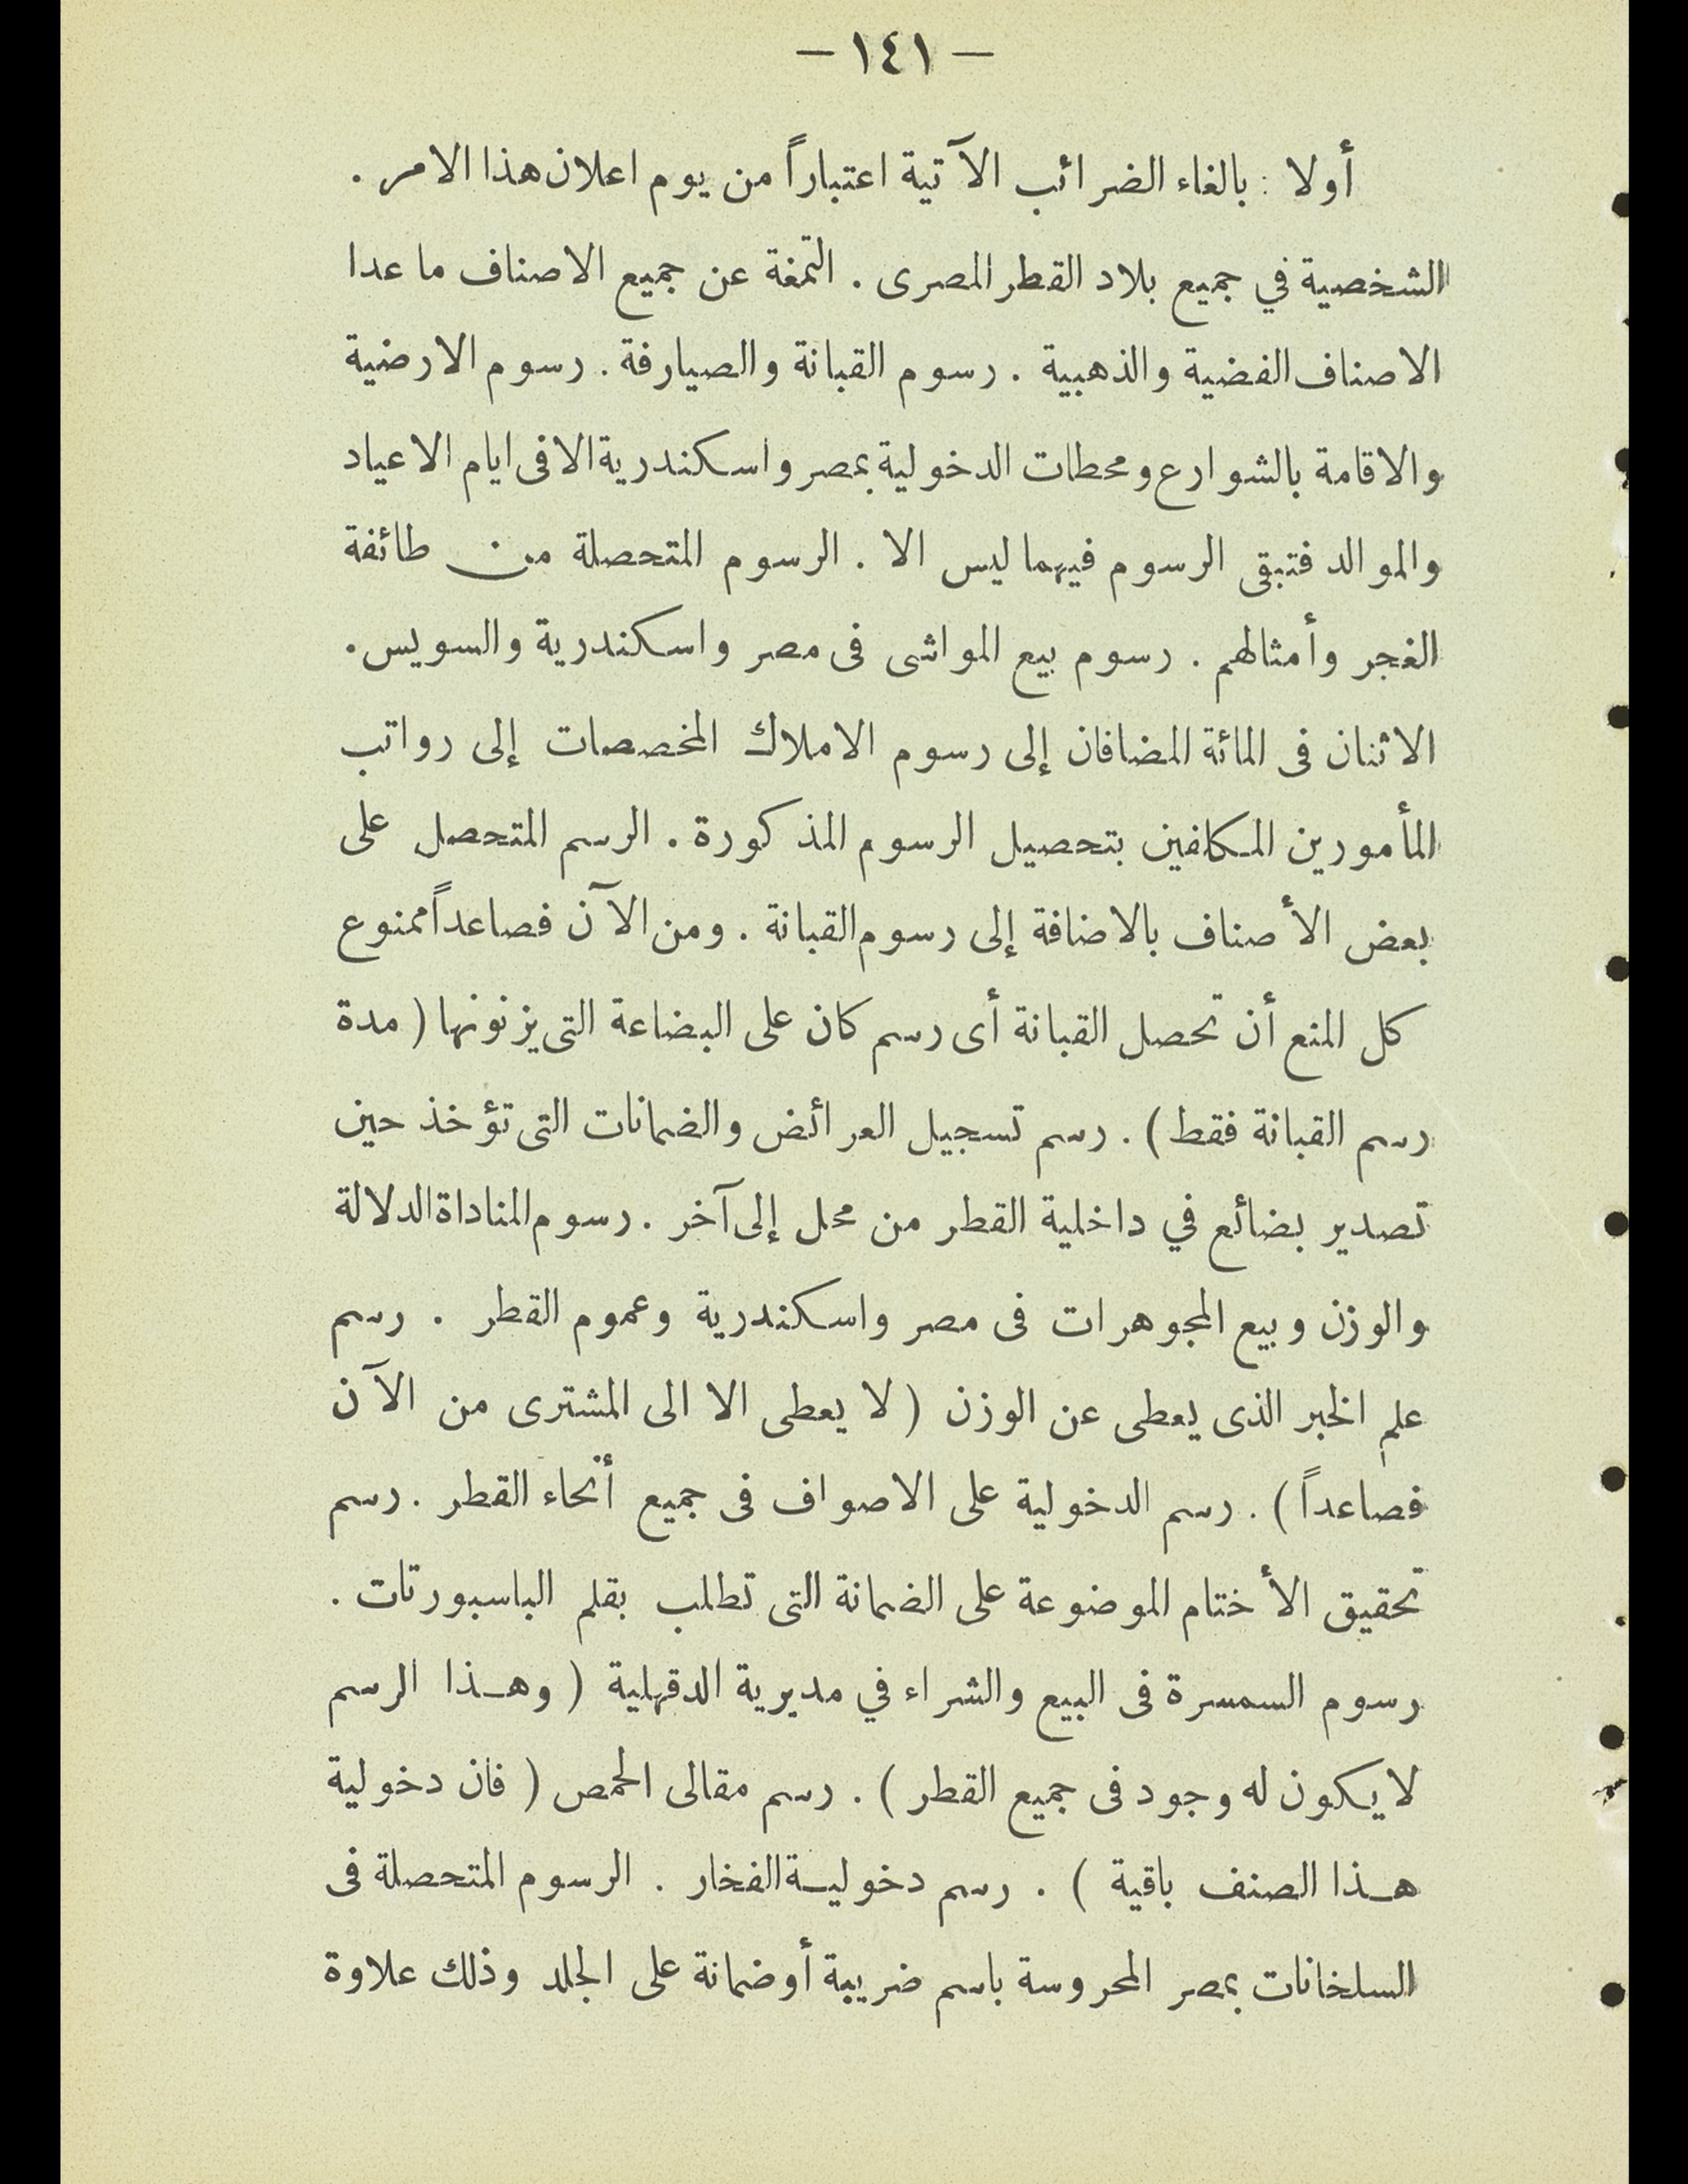 — ١٤١ —
أولا : بالغاء الضرائب الآتية اعتباراً من يوم اعلان هذا الامر .
الشخصية في جميع بلاد القطر المصرى . التمغة عن جميع الاصناف ما عدا
الاصناف الفضية والذهبية . رسوم القبانة والصيارفة . رسوم الارضية
والاقامة بالشوارع ومحطات الدخولية بمصر واسكندرية الا فى ايام الاعياد
والموالد فتبقى الرسوم فيهما ليس الا . الرسوم المتحصلة من طائفة
الغجر وأمثالهم . رسوم بيع المواشى فى مصر واسكندرية والسويس .
الاثنان فى المائة المضافان إلى رسوم الاملاك المخصصات إلى رواتب
المأمورين المكلفين بتحصيل الرسوم المذكورة . الرسم المتحصل على
بعض الأصناف بالاضافة إلى رسوم القبانة . ومن الآن فصاعداً ممنوع
كل المنع أن تحصل القبانة أى رسم كان على البضاعة التى يزنونها ( مدة
رسم القبانة فقط ) . رسم تسجيل العرائض والضمانات التى تؤخذ حين
تصدير بضائع في داخلية القطر من محل إلى آخر . رسوم المناداة الدلالة
والوزن وبيع المجوهرات فى مصر واسكندرية وعموم القطر . رسم
علم الخبر الذى يعطى عن الوزن ( لا يعطى الا الى المشترى من الآن
فصاعداً ) . رسم الدخولية على الاصواف فى جميع أنحاء القطر . رسم
تحقيق الأختام الموضوعة على الضمانة التى تطلب بقلم الباسبورتات .
رسوم السمسرة فى البيع والشراء في مديرية الدقهلية ( وهـذا الرسم
لا يكون له وجود فى جميع القطر ) . رسم مقالى الحمص ( فان دخولية
هـذا الصنف باقية ) . رسم دخوليـة الفخار . الرسوم المتحصلة فى
السلخانات بمصر المحروسة باسم ضريبة أو ضمانة على الجلد وذلك علاوة